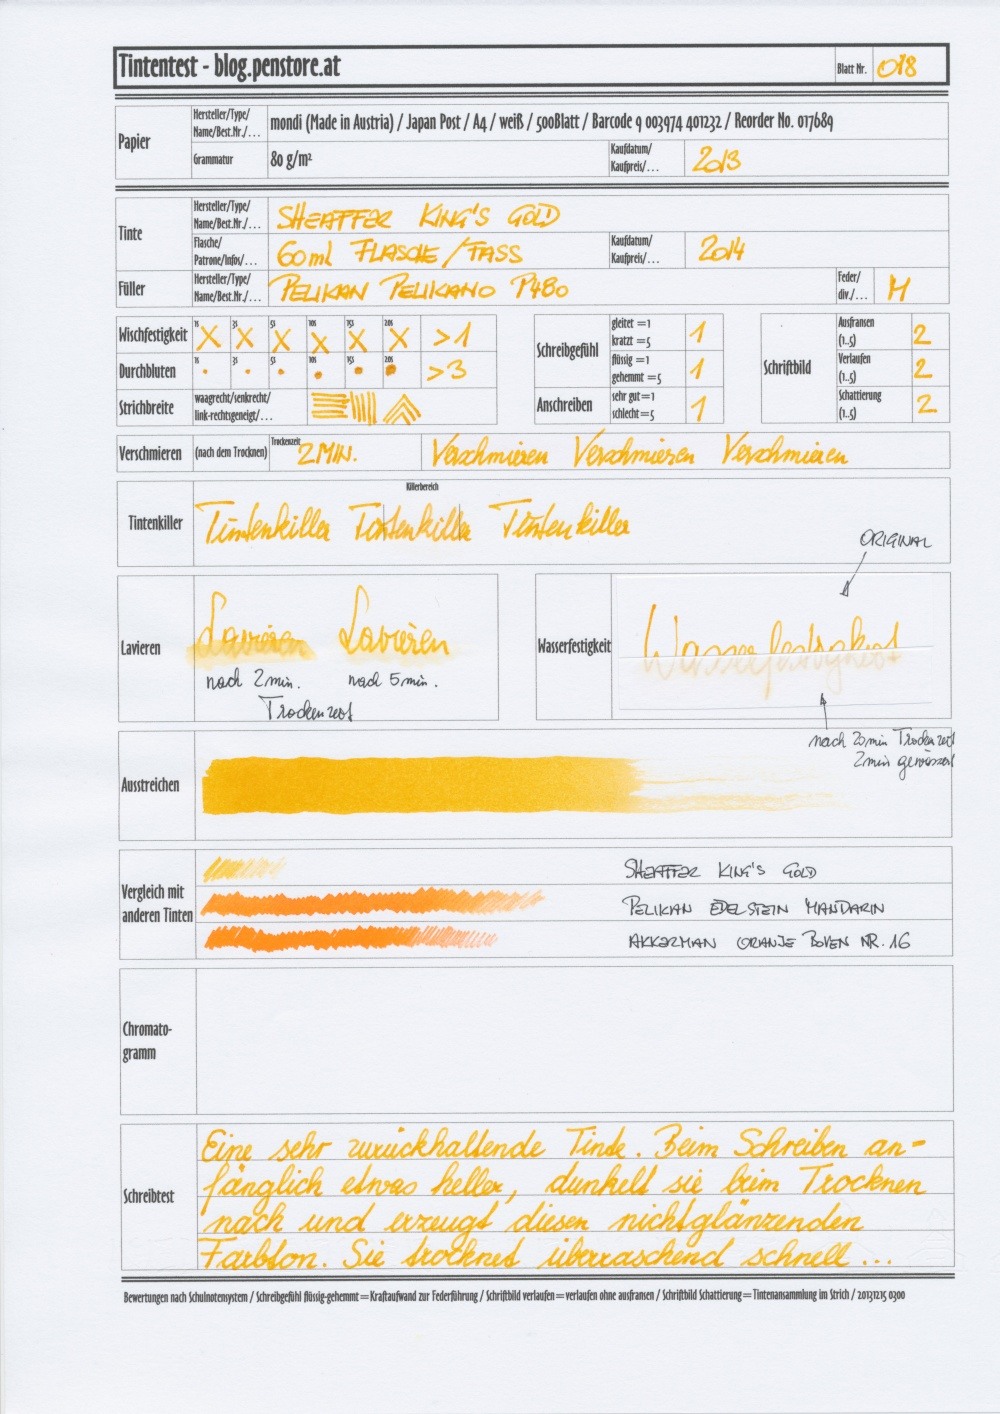 Tintentest - blog.penstore.at
Blatt Nr. 018
Papier
Hersteller/Type/
Name/Best.Nr./...
mondi (Made in Austria) / Japan Post / A4 / weiß / 500Blatt / Barcode 9 003974 401232 / Reorder No. 017689
Grammatur
80 g/m²
Kaufdatum/
Kaufpreis/...
2013
Tinte
Hersteller/Type/
Name/Best.Nr./...
SHEAFFER KING'S GOLD
Flasche/
Patrone/Infos/...
60ml FLASCHE/FASS
Kaufdatum/
Kaufpreis/...
2014
Füller
Hersteller/Type/
Name/Best.Nr./...
PELIKAN PELIKANO P480
Feder/
div./...
M
Wischfestigkeit
1s 3s 5s 10s 15s 20s
X X X X X X >1
Durchbluten
1s 3s 5s 10s 15s 20s
>3
Strichbreite
waagrecht/senkrecht/
link-rechtsgeneigt/...
Schreibgefühl
gleitet =1
kratzt =5
1
flüssig =1
gehemmt =5
1
Anschreiben
sehr gut=1
schlecht=5
1
Schriftbild
Ausfransen
(1..5)
2
Verlaufen
(1..5)
2
Schattierung
(1..5)
2
Verschmieren
(nach dem Trocknen)
Trockenzeit
2 MIN.
Verschmieren Verschmieren Verschmieren
Killerbereich
Tintenkiller
Tintenkiller Tintenkiller Tintenkiller
ORIGINAL
Lavieren
Lavieren Lavieren
nach 2min. nach 5min.
Trockenzeit
Wasserfestigkeit
Wasserfestigkeit
nach 20min Trockenzeit
2min gewässert
Ausstreichen
Vergleich mit
anderen Tinten
SHEAFFER KING'S GOLD
PELIKAN EDELSTEIN MANDARIN
AKKERMAN ORANJE BOVEN NR. 16
Chromato-
gramm
Schreibtest
Eine sehr zurückhaltende Tinte. Beim Schreiben an-
fänglich etwas heller, dunkelt sie beim Trocknen
nach und erzeugt diesen nichtglänzenden
Farbton. Sie trocknet überraschend schnell ...
Bewertungen nach Schulnotensystem / Schreibgefühl flüssig-gehemmt = Kraftaufwand zur Federführung / Schriftbild verlaufen = verlaufen ohne ausfransen / Schriftbild Schattierung = Tintenansammlung im Strich / 20131215 0300